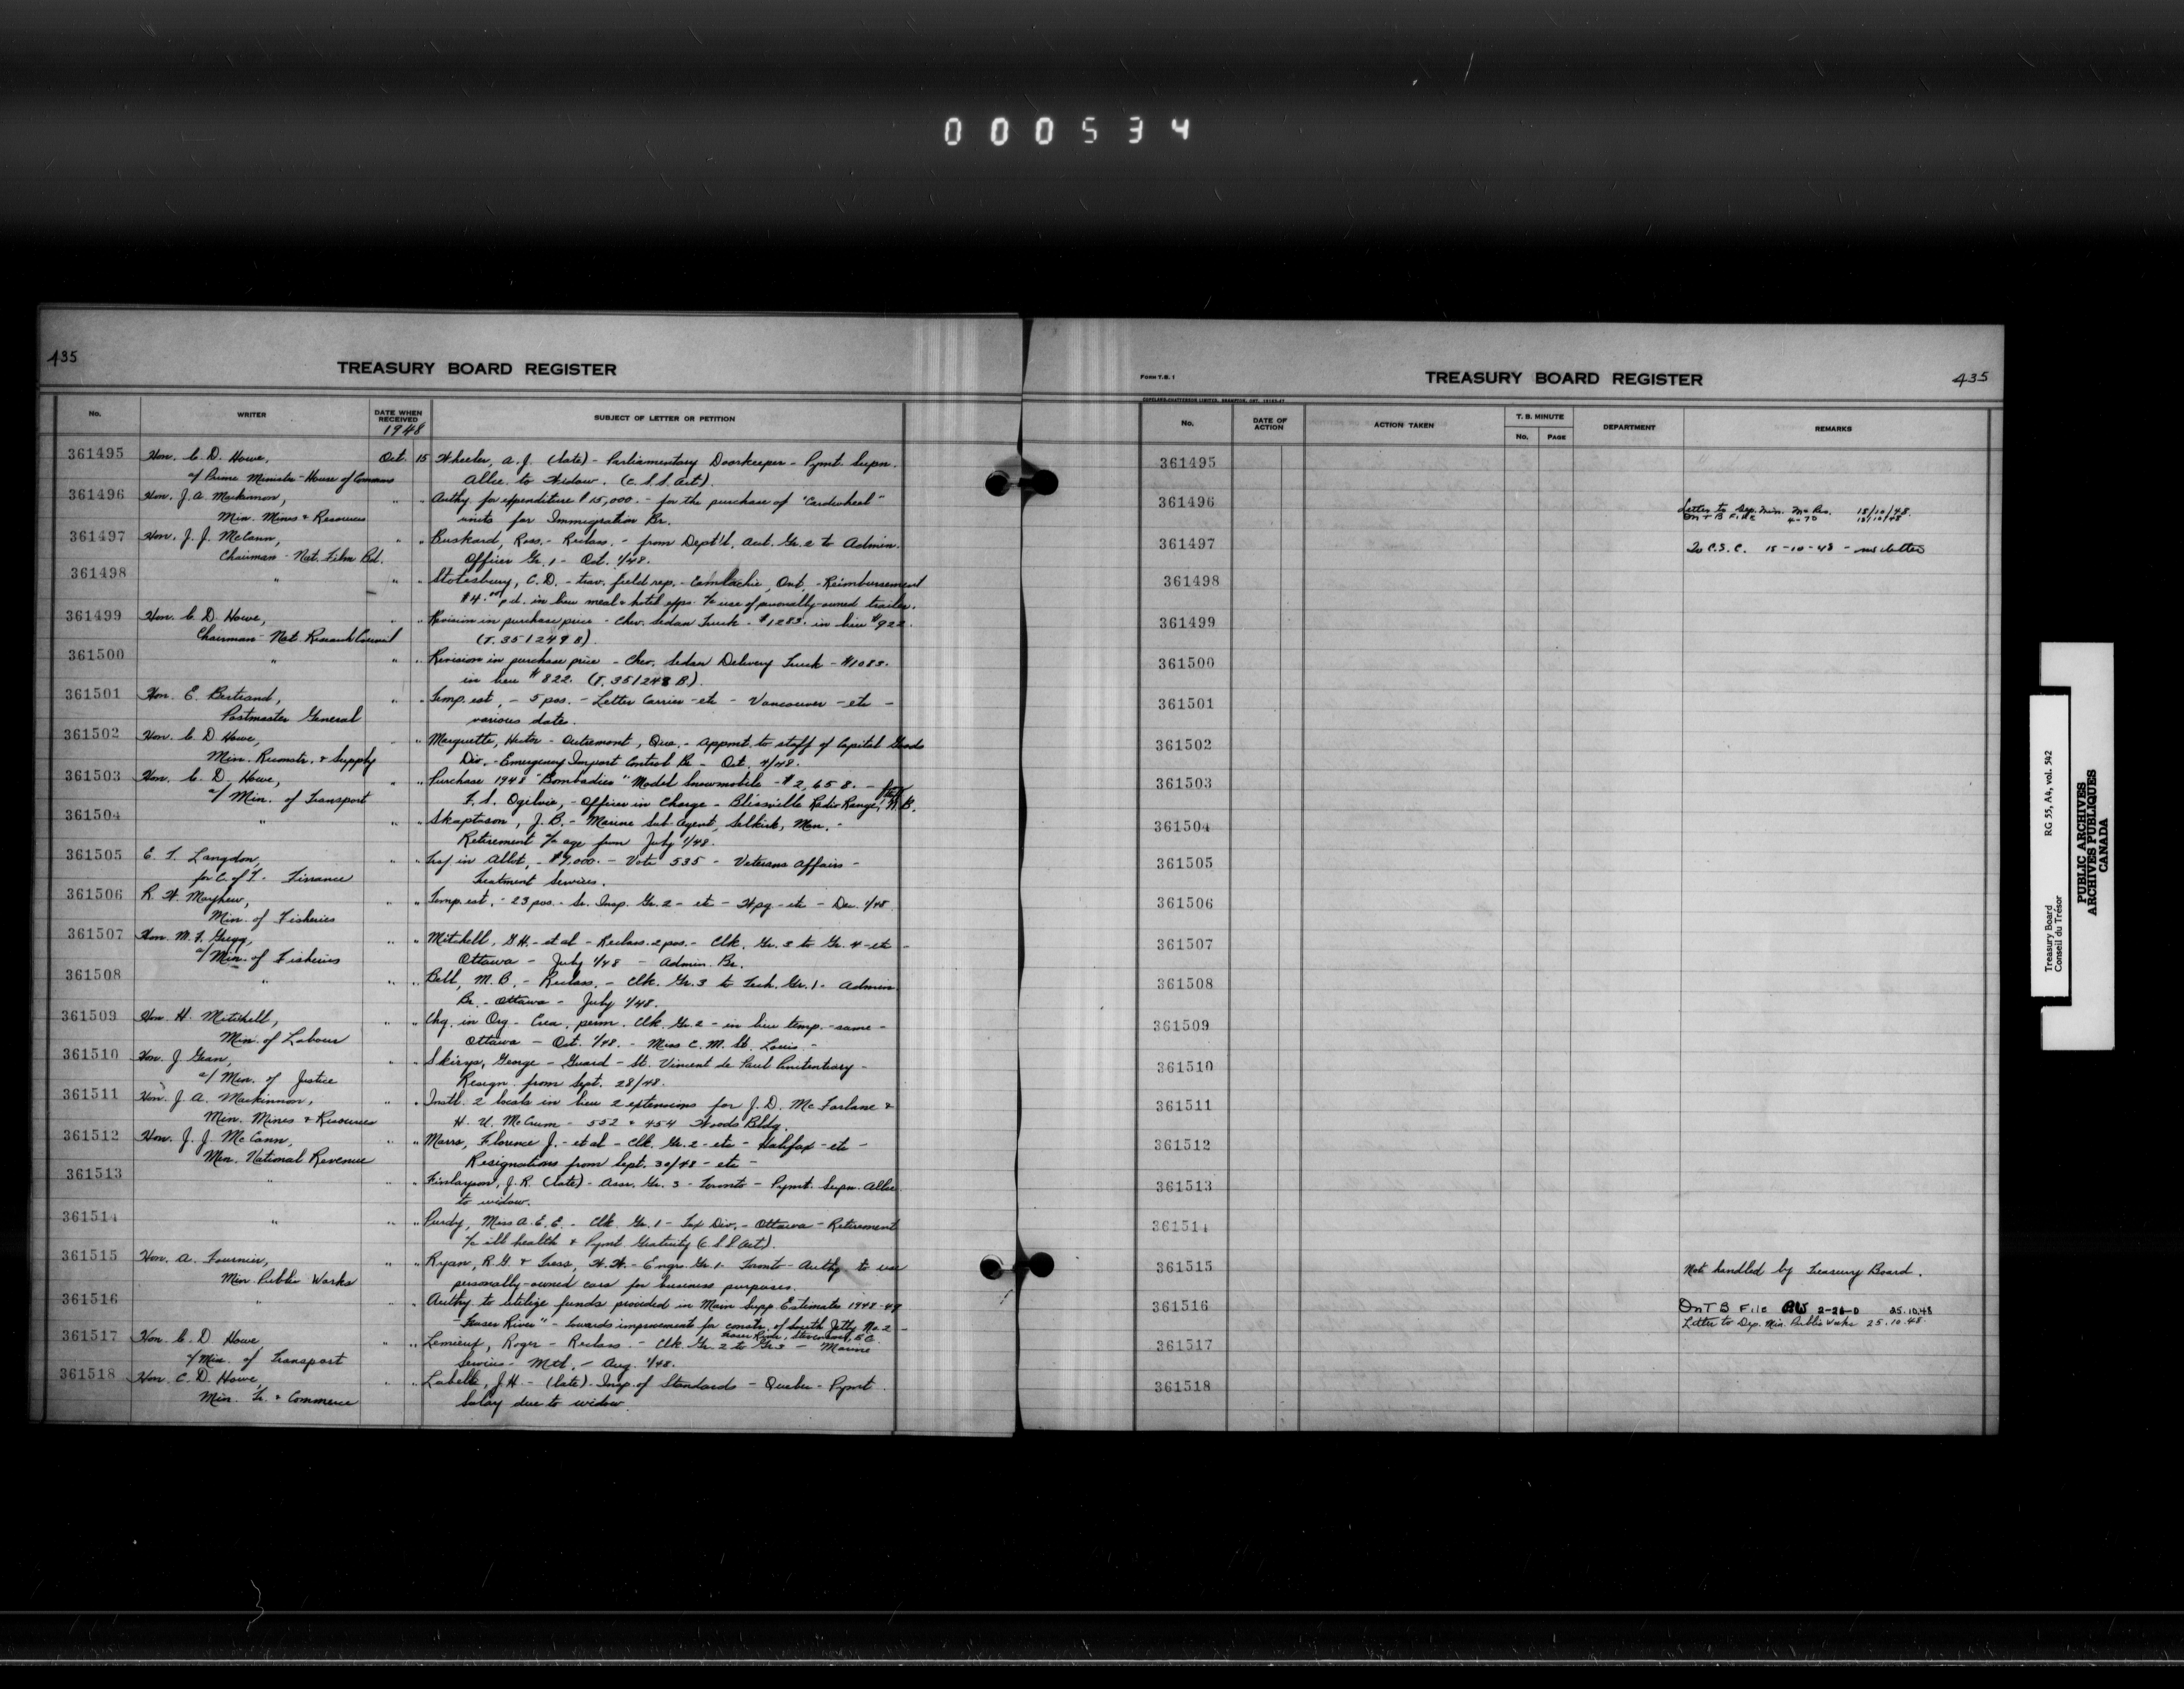 000534
435
TREASURY BOARD REGISTER
No.
WRITER
DATE WHEN RECEIVED
1948
SUBJECT OF LETTER OR PETITION
361495 Hon. C. D. Howe, Oct. 15 Wheeler, A. J. (late) - Parliamentary Doorkeeper - Pymt. Supn.
a/ Prime Minister - House of Commons Allce. to Widow. (C.S.S. Act).
361496 Hon. J. A. MacKinnon, " " Authy. for expenditure $15,000. - for the purchase of "Cardwheel"
Min. Mines & Resources units for Immigration Br.
361497 Hon. J. J. McCann, " " Buskard, Ross. - Reclass. - from Dept'l. Acct. Gr. 2 to Admin.
Chairman - Nat. Film Bd. Officer Gr. 1 - Oct. 1/48.
361498 " " " Stotesbury, C. D. - trav. field rep. - Camlachie, Ont. - Reimbursement
$4.00 p.d. in lieu meal & hotel exps. a/c use of personally-owned trailer.
361499 Hon. C. D. Howe, " " Revision in purchase price - Chev. Sedan Truck - $1283. in lieu $922.
Chairman - Nat. Research Council (T. 351249 B).
361500 " " " Revision in purchase price - Chev. Sedan Delivery Truck - $1083.
in lieu $822. (T. 351248 B).
361501 Hon. E. Bertrand, " " Temp. est. - 5 pos. - Letter Carrier - etc - Vancouver - etc -
Postmaster General various dates.
361502 Hon. C. D. Howe, " " Marquette, Hector - Outremont, Que. - Appmt. to staff of Capital Goods
Min. Reconstr. & Supply Div. - Emergency Import Control Br. - Oct. 4/48.
361503 Hon. C. D. Howe, " " Purchase 1948 "Bombadier" Model Snowmobile - $2,658. -
a/ Min. of Transport F. S. Ogilvie, - Officer in Charge - Blissville Radio Range, N.B.
361504 " " " Skaptason, J. B. - Marine Sub-Agent, Selkirk, Man. -
Retirement a/c age from July 1/48.
361505 E. T. Langdon, " " Trsf in Allot. - $9,000. - Vote 535 - Veterans Affairs -
for C. of T. Finance Treatment Services.
361506 R. W. Mayhew, " " Temp. est. - 23 pos. - Sr. Insp. Gr. 2 - etc - Wpg - etc - Dec. 1/48.
Min. of Fisheries
361507 Hon. M. F. Gregg, " " Mitchell, G. H. - et al - Reclass. 2 pos. - Clk. Gr. 3 to Gr. 4 - etc -
a/ Min. of Fisheries Ottawa - July 1/48 - Admin. Br.
361508 " " " Bell, M. B. - Reclass. - Clk. Gr. 3 to Tech. Gr. 1 - Admin
Br. - Ottawa - July 1/48.
361509 Hon. H. Mitchell, " " Chg. in Org. - Crea. perm. Clk. Gr. 2 - in lieu temp. - same -
Min. of Labour Ottawa - Oct. 1/48. - Miss C. M. St. Louis -
361510 Hon. J. Jean, " " Skirys, George - Guard - St. Vincent de Paul Penitentiary -
a/ Min. of Justice Resign. from Sept. 28/48.
361511 Hon. J. A. MacKinnon, " " Instl. 2 locals in lieu 2 extensions for J. D. McFarlane &
Min. Mines & Resources H. U. McCrum - 552 & 454 Woods Bldg.
361512 Hon. J. J. McCann, " " Marrs, Florence J. - et al - Clk. Gr. 2 - etc - Halifax - etc -
Min. National Revenue Resignations from Sept. 30/48 - etc -
361513 " " " Finlayson, J. R. (late) - Assr. Gr. 3 - Toronto - Pymt. Supn. Allce
to widow.
361514 " " " Purdy, Miss A. E. E. - Clk. Gr. 1 - Tax Div. - Ottawa - Retirement
a/c ill health & Pymt. Gratuity (C.S.S. Act).
361515 Hon. A. Fournier, " " Ryan, R. G. & Tress, W. W. - Engrs. Gr. 1 - Toronto - Authy. to use
Min. Public Works personally-owned cars for business purposes.
361516 " " " Authy. to utilize funds provided in Main Supp. Estimates 1948-49
"Fraser River" - towards improvement for constr. of South Jetty No 2 -
Fraser River, Steveston, B.C.
361517 Hon. C. D. Howe " " Lemieux, Roger - Reclass. - Clk. Gr. 2 to Gr. 3 - Marine
a/ Min. of Transport Services - Mtl. - Aug. 1/48.
361518 Hon. C. D. Howe, " " Labelle, J. H. - (late) - Insp. of Standards - Quebec - Pymt.
Min. Tr. & Commerce Salary due to widow.
FORM T.B. 1
TREASURY BOARD REGISTER
435
COPELAND-CHATTERSON LIMITED, BRAMPTON, ONT.
No.
DATE OF ACTION
ACTION TAKEN
T. B. MINUTE
No.
PAGE
DEPARTMENT
REMARKS
361495
361496 Letter to Dep. Min. M & Res. 18/10/48.
On T B File 4-70 18/10/48
361497 To C.S.C. 15-10-48 - no letter
361498
361499
361500
361501
361502
361503
361504
361505
361506
361507
361508
361509
361510
361511
361512
361513
361514
361515 Not handled by Treasury Board.
361516 On T B File PW 2-26-0 25.10.48
Letter to Dep. Min. Public Works 25.10.48.
361517
361518
Treasury Board RG 55, A4, vol. 542
Conseil du Trésor
PUBLIC ARCHIVES
ARCHIVES PUBLIQUES
CANADA